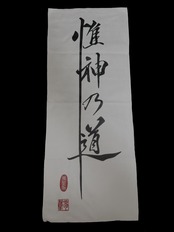 惟神乃道